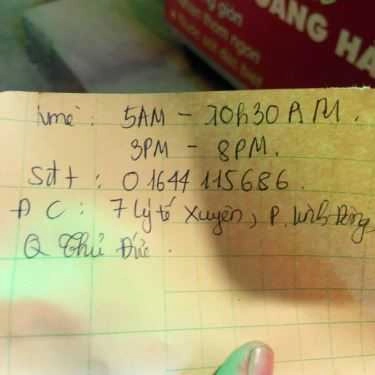 GIANG HA
time : 5AM - 10h30AM.
3PM - 8PM.
Sđt : 01644115686.
Đ C : 7 Lý tế Xuyên, P. Linh Đông,
Q Thủ Đức.